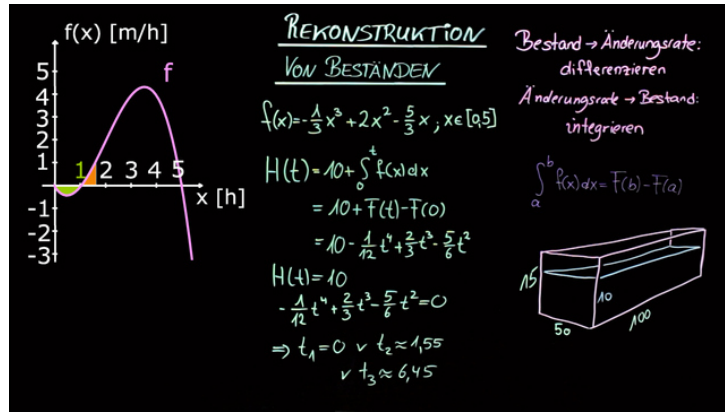 f(x) [m/h]
f
5
4
3
2
1
-1
-2
-3
1 2 3 4 5
x [h]
REKONSTRUKTION
VON BESTÄNDEN
f(x)=-1/3x³+2x²-5/3x ; x∈[0,5]
H(t)=10+∫₀ᵗf(x)dx
=10+F(t)-F(0)
=10-1/12t⁴+2/3t³-5/6t²
H(t)=10
-1/12t⁴+2/3t³-5/6t²=0
⇒ t₁=0 ∨ t₂≈1,55
∨ t₃≈6,45
Bestand → Änderungsrate:
differenzieren
Änderungsrate → Bestand:
integrieren
∫ₐᵇf(x)dx=F(b)-F(a)
15
10
50
100